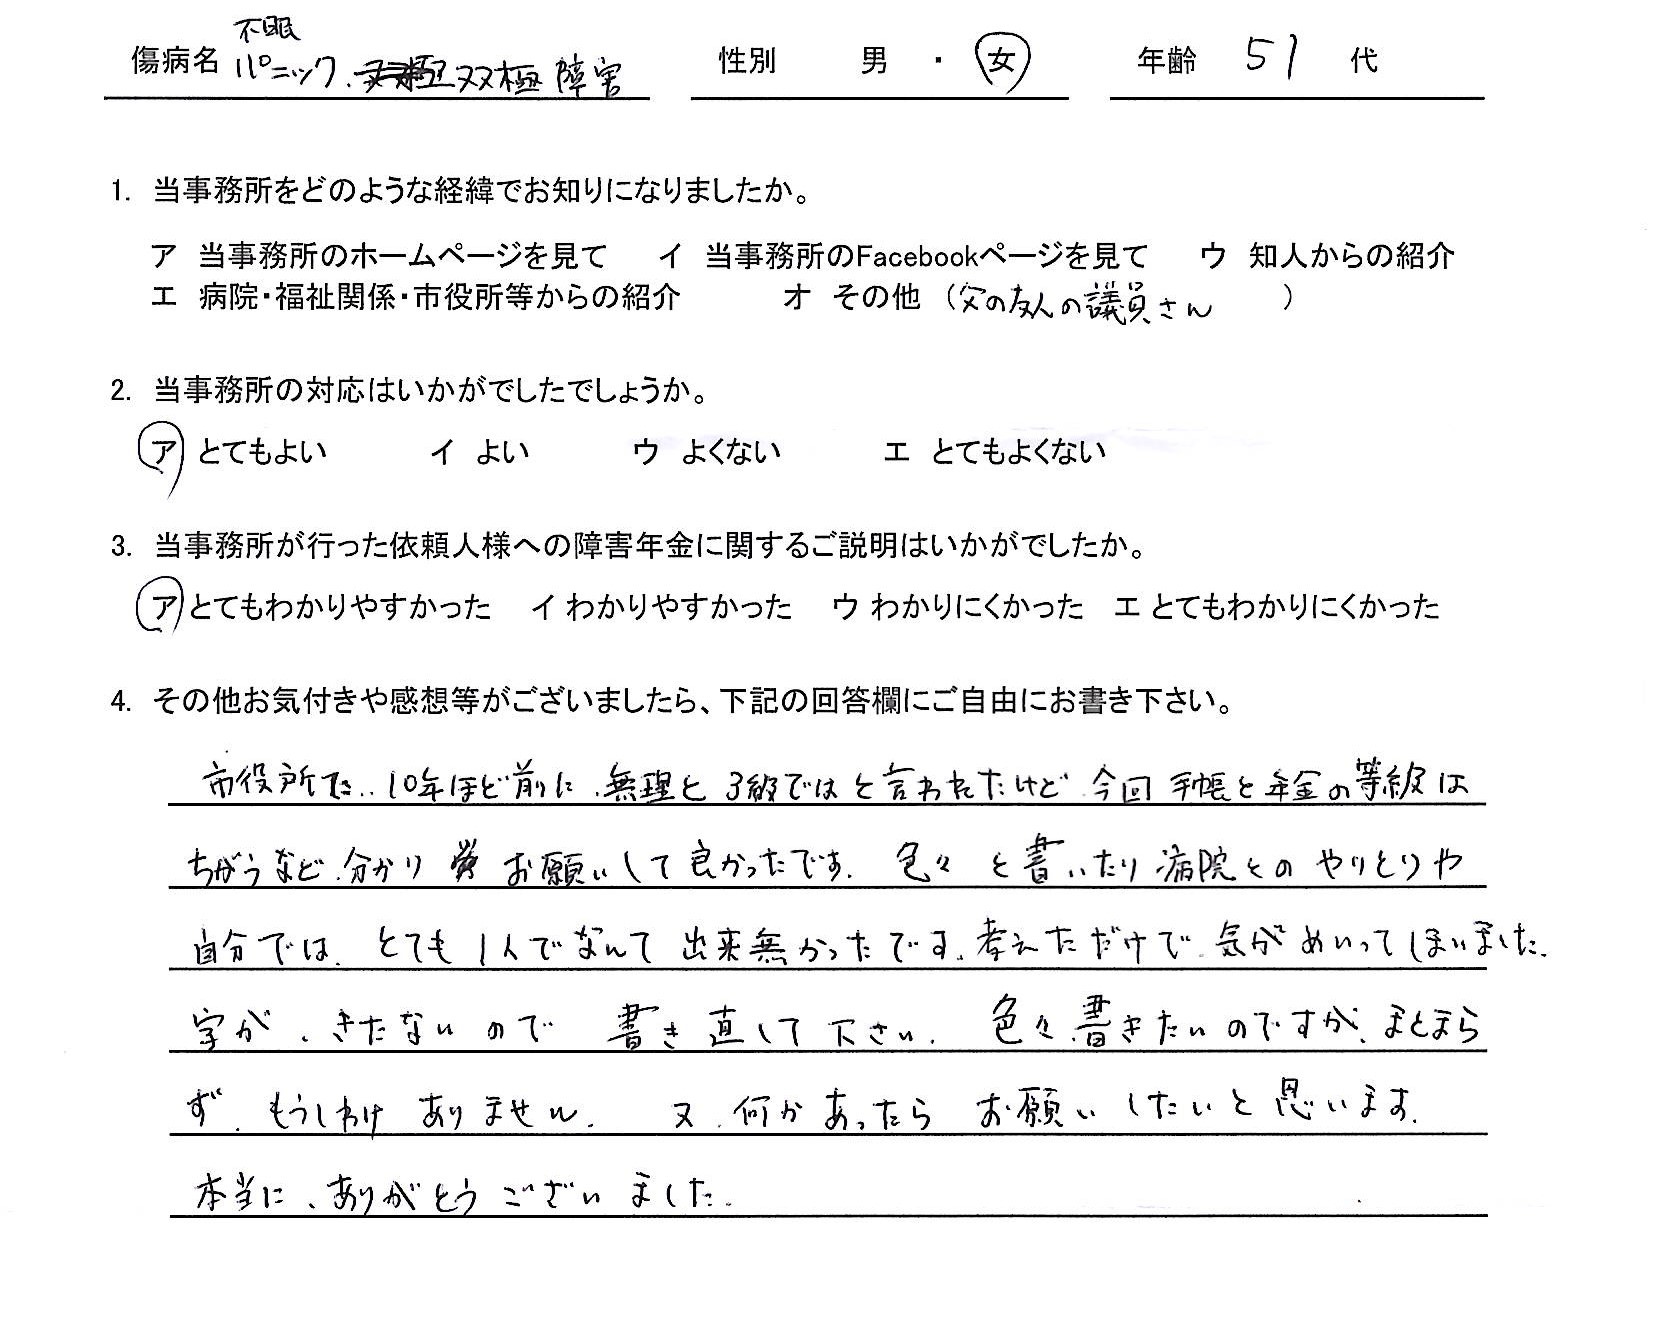 不眠
傷病名 パニック、双極障害 性別 男 ・ 女 年齢 51 代
1. 当事務所をどのような経緯でお知りになりましたか。
ア 当事務所のホームページを見て イ 当事務所のFacebookページを見て ウ 知人からの紹介
エ 病院・福祉関係・市役所等からの紹介 オ その他 (父の友人の議員さん )
2. 当事務所の対応はいかがでしたでしょうか。
ア とてもよい イ よい ウ よくない エ とてもよくない
3. 当事務所が行った依頼人様への障害年金に関するご説明はいかがでしたか。
ア とてもわかりやすかった イ わかりやすかった ウ わかりにくかった エ とてもわかりにくかった
4. その他お気付きや感想等がございましたら、下記の回答欄にご自由にお書き下さい。
市役所で、10年ほど前に、無理と3級ではと言われたけど、今回 手帳と年金の等級は
ちがうなど、分かり お願いして良かったです。色々と書いたり病院とのやりとりや
自分では、とても1人でなんて出来無かったです。考えただけで、気がめいってしまいました。
字が、きたないので 書き直して下さい。 色々、書きたいのですが、まとまら
ず、もうしわけありません。 又、何かあったら お願いしたいと思います。
本当に、ありがとうございました。